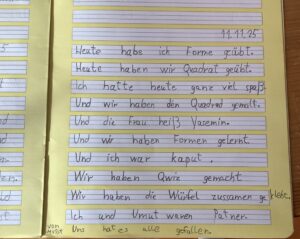 11.11.25
Heute habe ich Forme geübt.
Heute haben wir Quadrat geübt.
Ich hatte heute ganz viel spaß.
Und wir haben den Quadrad gemolt.
Und die Frau heißt Yasemin.
Und wir haben Formen gelernt.
Und ich war kaput.
Wir haben Quiz gemacht
Wir haben die Würfel zusamen geklebt.
Ich und Umut waren Patner.
Uns hat es alle gefallen.